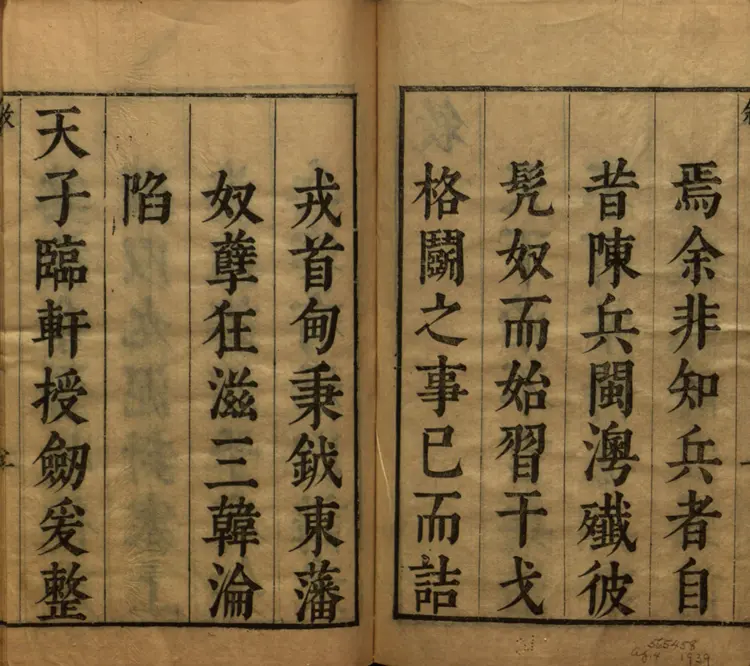 焉余非知兵者自
昔陳兵閩澚殲彼
髠奴而始習干戈
格鬬之事已而詰
戎首甸秉鉞東藩
奴孽狂滋三韓淪
陷
天子臨軒授劒爰整
565458
1939